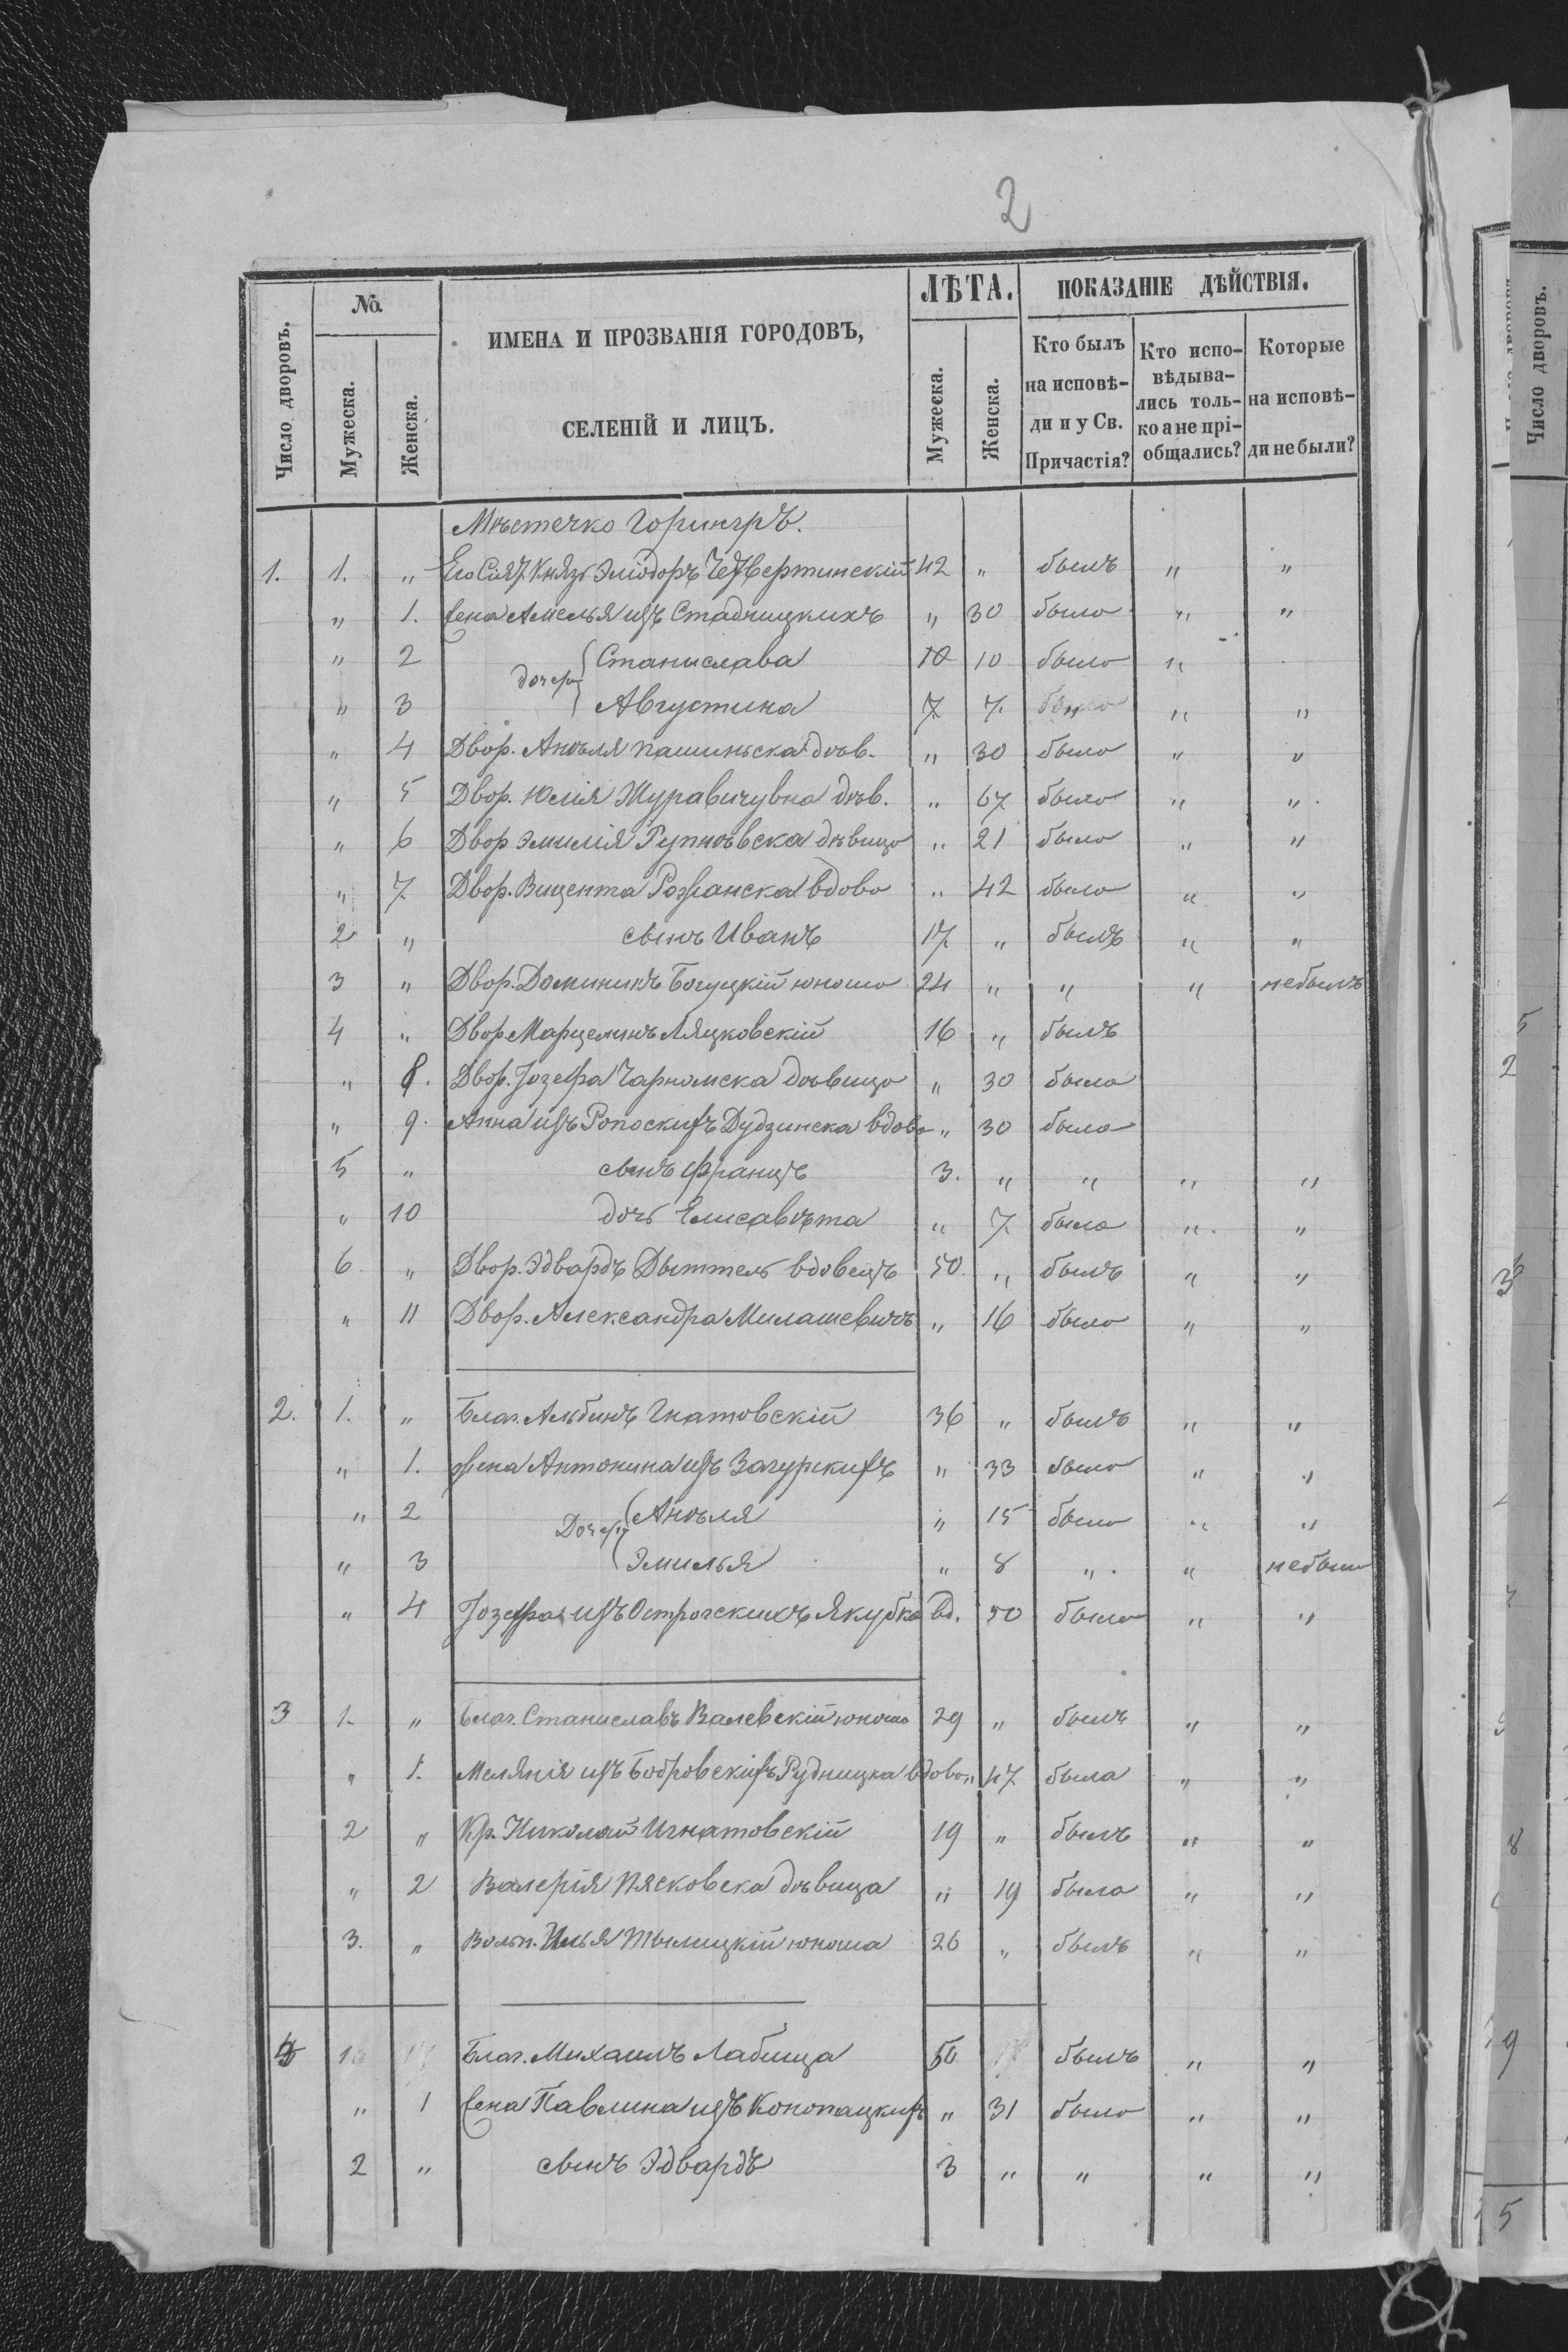 2
Число дворовъ.
№
Мужеска.
Женска.
ИМЕНА И ПРОЗВАНІЯ ГОРОДОВЪ,
СЕЛЕНІЙ И ЛИЦЪ.
ЛѢТА.
Мужеска.
Женска.
ПОКАЗАНІЕ ДѢЙСТВІЯ.
Кто былъ
на исповѣ-
ди и у Св.
Причастія?
Кто испо-
вѣдыва-
лись толь-
ко а не прі-
общались?
Которые
на исповѣ-
ди не были?
Мѣстечко
1. 1. " Князь Эліодоръ Четвертинскій 42 " былъ " "
" 1. жена Амелья изъ Стадницкихъ " 30 была " "
" 2 дочери Станислава 10 10 была "
" 3 Августина 7 7. была " "
" 4 Двор. Анѣля дѣв. " 30 была " "
" 5 Двор. Юлія Журавичувна дѣв. " 67 была " "
" 6 Двор Эмилія Рупнѣвска дѣвица " 21 была " "
" 7 Двор. Вицента Рожанска вдова " 42 была " "
2 " сынъ Иванъ 17 " былъ " "
3 " Двор. Доминикъ Богуцкій юноша 24 " " " небылъ
4 " Двор Марцелинъ Ляцковскій 16 " былъ
" 8. Двор. Іозефа Чарномска дѣвица " 30 была
" 9. Анна изъ Дудзинска вдова " 30 была
5 " сынъ Францъ 3. " " " "
" 10 дочь Елисавѣта " 7 была " "
6 " Двор. Эдвардъ Дыттель вдовецъ 50. " былъ " "
" 11 Двор. Александра Милашевичъ " 16 была " "
2. 1. " Благ. Альбинъ Гнатовскій 36 " былъ " "
" 1. жена Антонина изъ Загурскихъ " 33 была " "
" 2 Дочери Анѣля " 15 была " "
" 3 Эмилья " 8 " " небыла
" 4 Іозефа изъ Острогскихъ Якубка вд. 50 была " "
3 1. " Благ. Станиславъ Валевскій юноша 29 " былъ " "
" 1. Мелянія изъ Бобровскихъ Рудницка вдова " 47 была " "
2 " Кр. Николай Игнатовскій 19 " былъ " "
" 2 Валерія Пясковска дѣвица " 19 была " "
3. " Вольн. Илья юноша 26 " былъ " "
4 1 " Благ. Михаилъ Лабенца 50 " былъ " "
" 1 жена Павлина изъ Конопацкихъ " 31 была " "
2 " сынъ Эдвардъ 3 " " " "
Число дворовъ.
5
2
3
8
9
5